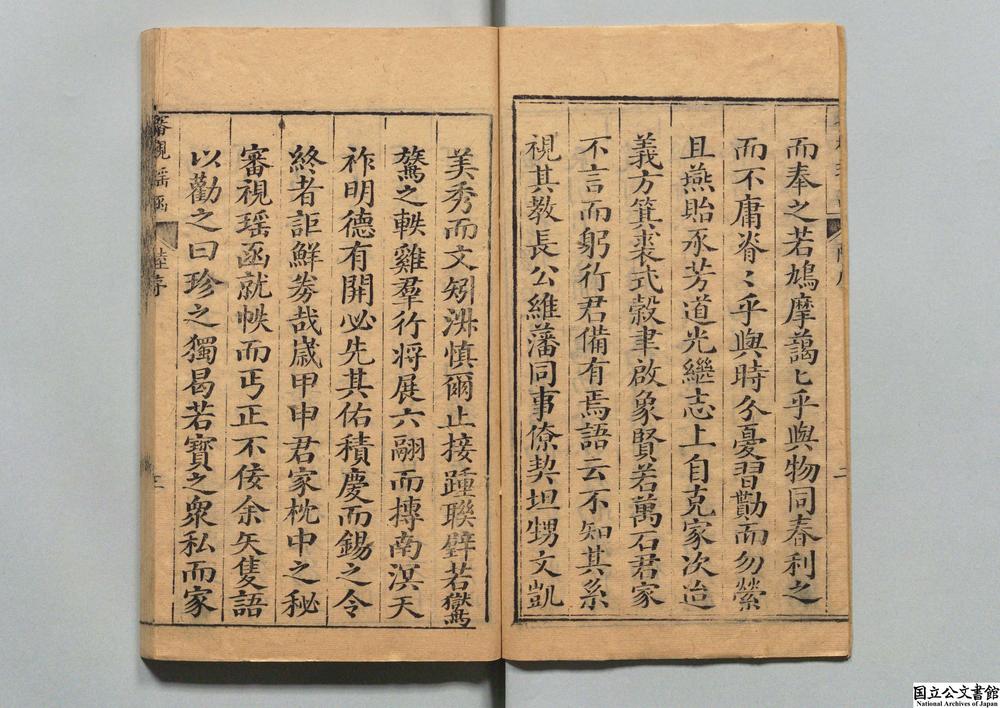 而奉之若鳩摩藹〻乎與物同春利之
而不庸脊〻乎與時分憂習勩而勿縈
且燕貽承芳道光繼志上自克家次迨
義方箕裘式穀聿啟象賢若萬石君家
不言而躬行君備有焉語云不知其系
視其教長公維藩同事僚契坦甥文凱
美秀而文矧洴慎爾止接踵聯辟若鸑
鷟之軼雞羣行将展六翮而摶南溟天
祚明德有開必先其佑積慶而錫之令
終者詎鮮券哉歲甲申君家枕中之秘
審視瑶函就帙而丐正不佞余矢隻語
以勸之曰珍之獨曷若寳之衆私而家
審視瑶函
陸序
三
二
国立公文書館
National Archives of Japan